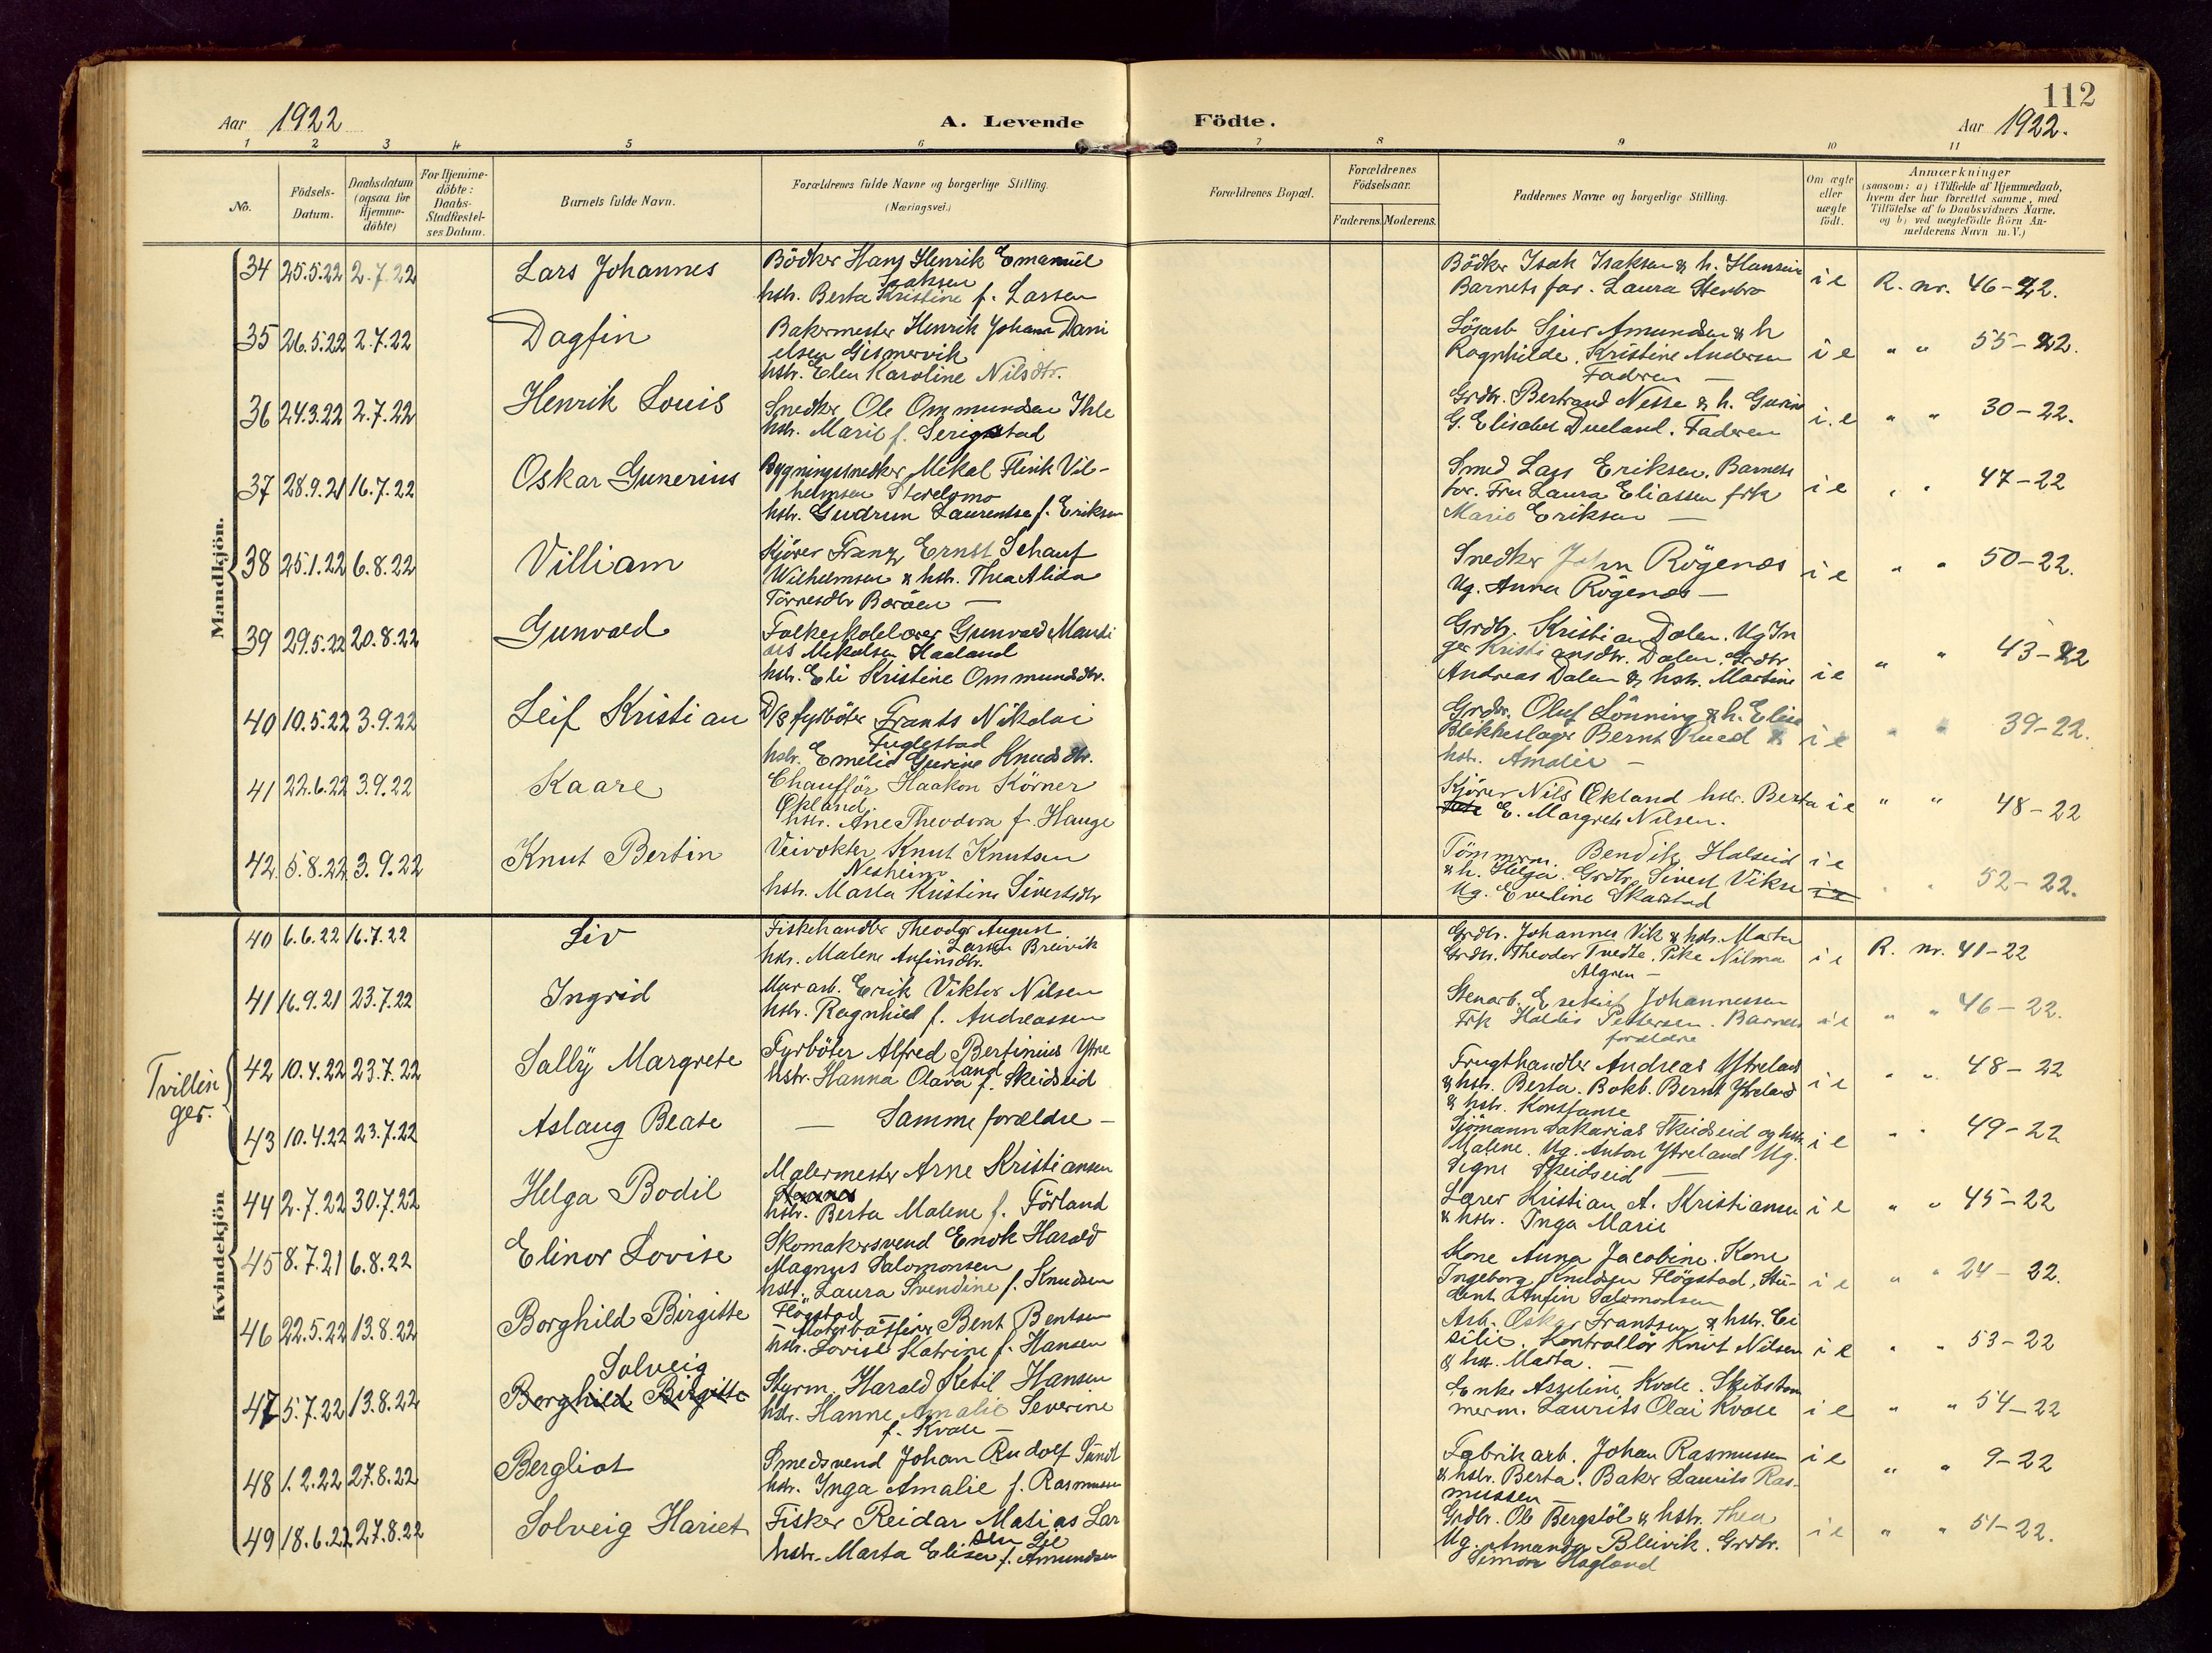 112
Aar 1922
A. Levende Födte.
Aar 1922.
1 2 3 4 5 6 7 8 9 10 11
No.
Födsels-
Datum.
Daabsdatum
(ogsaa for
Hjemme-
döbte)
For Hjemme-
döbte:
Daabs-
Stadfæstel-
ses Datum.
Barnets fulde Navn.
Forældrenes fulde Navne og borgerlige Stilling.
(Næringsvei.)
Forældrenes Bopæl.
Forældrenes
Födselsaar.
Faderens. Moderens.
Faddernes Navne og borgerlige Stilling.
Om ægte
eller
uægte
födt.
Anmærkninger
(saasom: a) i Tilfælde af Hjemmedaab,
hvem der har forrettet samme, med
Tilföielse af to Daabsvidners Navne,
og b) ved uægtefödte Börn An-
melderens Navn m. V.)
Mandkjön.
34 25.5.22 2.7.22 Lars Johannes
Bödker Hans Henrik Emanuel
Isaksen
hstr. Berta Kristine f. Larsen
Bödker Isak Isaksen & h. Hansine
Barnets far. Laura Stenbro
i e R. nr. 46-22.
35 26.5.22 2.7.22 Dagfin
Bakermester Henrik Johan Dani
elsen Gismervik
hstr. Elen Karoline Nilsdtr.
Lösarb Sjur Amundsen & h
Ragnhilde. Kristine Andersen
Faderen —
i e " " 55-22.
36 24.3.22 2.7.22 Henrik Louis
Snedker Ole Ommundsen Ihle
hstr. Marie f. Serigstad
Grdbr. Bertrand Nesse & h. Gurine
G. Elisabet Dueland. Faderen
i.e " " 30-22.
37 28.9.21 16.7.22 Oskar Gunerius
Bygningssnedker Mikal Flink Vil-
helmsen
hstr. Gudrun Laurentse f. Eriksen
Smed Lars Eriksen. Barnets
far. Fru Laura Eliassen frk
Marie Eriksen —
i e " " 47-22
38 25.1.22 6.8.22 Villiam
Kjörer Franz Ernst Schauf
Wilhelmsen & hstr. Thea Alida
Törresdtr Baröen —
Snedker John Rögenes
Ug. Anna Rögenes —
i e " " 50-22.
39 29.5.22 20.8.22 Gunvald
Folkeskolelærer Gunvald Mauri
Mikalsen Haaland
hstr. Eli Kristine Ommundsdtr.
Grdbr. Kristian Dalen. Ug In
ger Kristiansdtr. Dalen. Grdbr.
Andreas Dalen & hstr. Martine
i e " " 43-22
40 10.5.22 3.9.22 Leif Kristian
D/S fyrböter Frants Nikolai
Fuglestad
hstr. Emelie Gurine Knudsdtr.
Grdbr. Oluf Lönning & h. Elise
Blikkeslager Bernt Rued &
hstr. Amalie —
i e " " 39-22.
41 22.6.22 3.9.22 Kaare
Chaufför Haakon Körner
Økland.
hstr. Ane Theodora f. Hauge
Kjörer Nils Økland hstr. Berta
E. Margrete Nilsen.
i e " " 48-22
42 5.8.22 3.9.22 Knut Bertin
Veivokter Knut Knutsen
Nesheim
hstr. Marta Kristine Sivertsdtr
Tömmerm. Bendik Halseid
& h. Helga. Grdbr. Sivert Vikse
Ug. Eveline Skarstad
i e
i e " " 52-22.
Kvindekjön
40 6.6.22 16.7.22 Liv
Fiskehandler Theodor August
Larsen Breivik
hstr. Malene Anfinsdtr.
Grdbr. Johannes Vik & hstr. Marta
Grdbr. Theodor Tvedte. Pike Nilma
Algren —
i e R. nr. 41-22
41 16.9.21 23.7.22 Ingrid
Murarb. Erik Viktor Nilsen
hstr. Ragnhild f. Andreassen
Stenarb. Esekiel Johannessen
Frk Haldis Pettersen. Barnets
forældre
i e " " 46-22.
Tvillin
ger.
42 10.4.22 23.7.22 Sally Margrete
Fyrböter Alfred Bertinius Ytre
land
hstr. Hanna Olava f. Skeidseid
Frugthandler Andreas Ytreland
& hstr. Berta. Bokb. Bernt Ytreland
& hstr. Konstanse
i e " " 48-22
43 10.4.22 23.7.22 Aslaug Beate
— Samme forældre —
Sjömann Sakarias Skeidseid og hstr.
Malene. Ug. Anton Ytreland Ug.
Signe Skeidseid —
i e " " 49-22
44 2.7.22 30.7.22 Helga Bodil
Malermester Arne Kristiansen
hstr. Berta Malene f. Förland
Lærer Kristian A. Kristiansen
& hstr. Inga Marie
i e " " 45-22
45 8.7.21 6.8.22 Elinor Lovise
Skomakersvend Enok Harald
Magnus Salomonsen
hstr. Laura Svendine f. Knudsen
Flögstad
Kone Anna Jacobine. Kone
Ingeborg Knudsen Flögstad, Stu-
dent Anfin Salomonsen
i e " " 24-22.
46 22.5.22 13.8.22 Borghild Birgitte
— Motorbåtfører Bent Bentsen
hstr. Lovise Katrine f. Hansen
Arb. Oskar Frantsen & hstr. Ce
silie. Kontrollör Knut Nilsen
& hstr. Marta. —
i e " " 53-22
47 5.7.22 13.8.22 Solveig
Borghild Birgitte
Styrm. Harald Ketil Hansen
hstr. Hanne Amalie Severine
f. Kvale —
Enke Asseline Kvale. Skibstöm
merm. Laurits Olai Kvale
i e " " 54-22
48 1.2.22 27.8.22 Bergliot
Smedsvend Johan Rudolf Sundt
hstr. Inga Amalie f. Rasmussen
Fabrikarb. Johan Rasmussen
& hstr. Berta. Baker Laurits Ras-
mussen —
i e " " 9-22
49 18.6.22 27.8.22 Solveig Hariet
Fisker Reidar Matias Lar
sen Lie
hstr. Marta Elisa f. Amundsen
Grdbr. Ole Bergstöl & hstr. Thea
Ug. Amanda Bleivik. Grdbr.
Simon Hagland
i e " " 51-22.